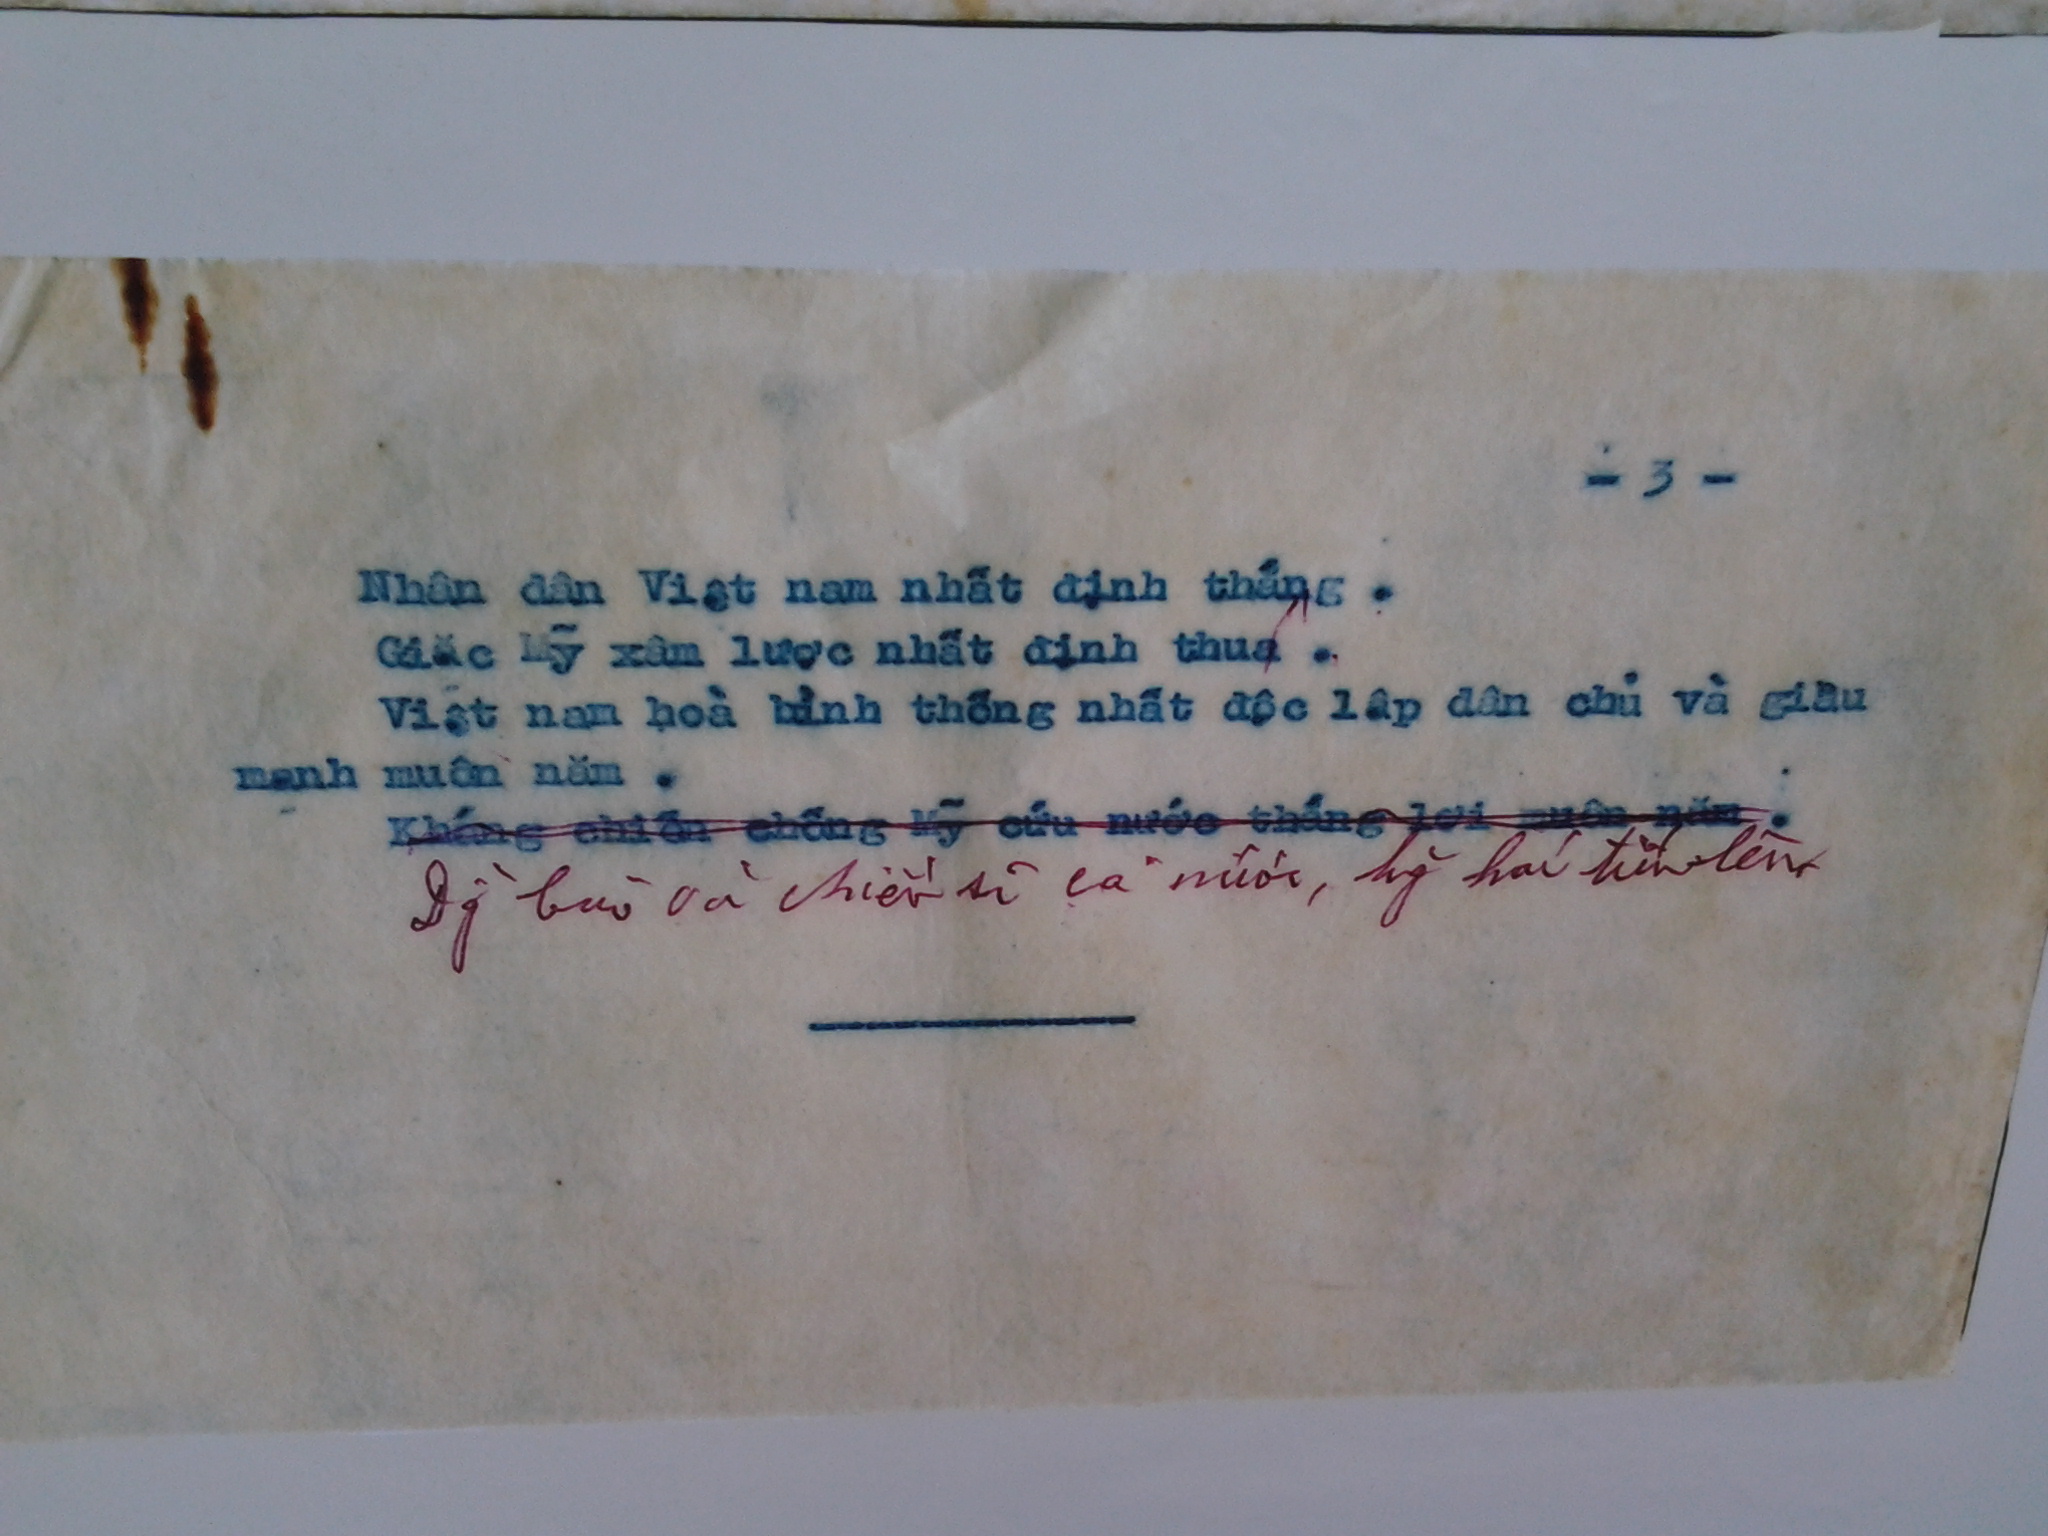 - 3 -
Nhân dân Việt nam nhất định thắng .
Giặc Mỹ xâm lược nhất định thua .
Việt nam hoà bình thống nhất độc lập dân chủ và giàu
mạnh muôn năm .
Kháng chiến chống Mỹ cứu nước thắng lợi muôn năm .
bào và chiến sĩ cả nước, hãy hái tiến lên